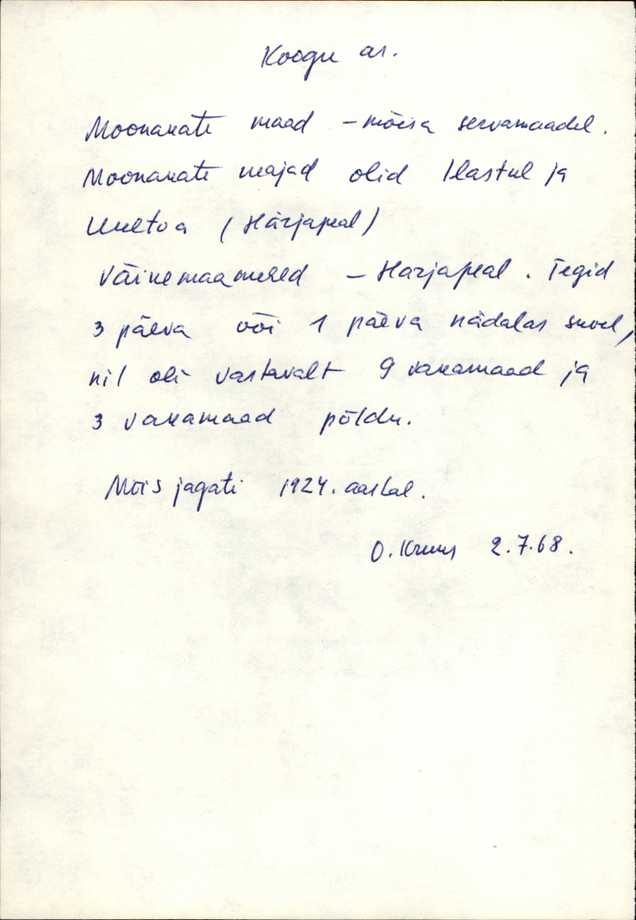 Koogu as.
Moonakate maad – mõisa servamaadel.
Moonakate majad olid Ilastul ja
(Härjapeal)
Väikemaamehed – Harjapeal. Tegid
3 päeva või 1 päeva nädalas suvel,
neil oli vastavalt 9 vakamaad ja
3 vakamaad põldu.
Mõis jagati 1924. aastal.
O. Kruus 2.7.68.